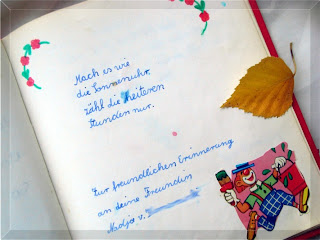 Mach es wie
die Sonnenuhr,
zähl die heiteren
Stunden nur.
Zur freundlichen Erinnerung
an deine Freundin
Nadja v.